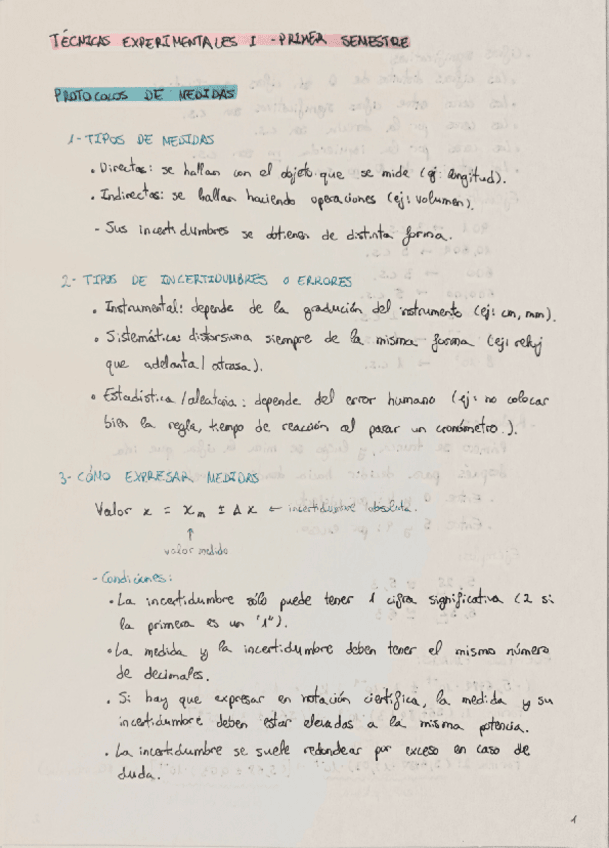 TÉCNICAS EXPERIMENTALES I - PRIMER SEMESTRE
PROTOCOLOS DE MEDIDAS
1- TIPOS DE MEDIDAS
• Directas: se hallan con el objeto que se mide (ej: longitud).
• Indirectas: se hallan haciendo operaciones (ej: volumen).
- Sus incertidumbres se obtienen de distinta forma.
2- TIPOS DE INCERTIDUMBRES O ERRORES
• Instrumental: depende de la gradución del instrumento (ej: cm, mm).
• Sistemática: distorsiona siempre de la misma forma (ej: reloj
que adelanta / atrasa).
• Estadística / aleatoria: depende del error humano (ej: no colocar
bien la regla, tiempo de reacción al parar un cronómetro.).
3- CÓMO EXPRESAR MEDIDAS
Valor x = xₘ ± Δx ← incertidumbre absoluta.
↑
valor medido
- Condiciones:
• La incertidumbre sólo puede tener 1 cifra significativa (2 si
la primera es un "1").
• La medida y la incertidumbre deben tener el mismo número
de decimales.
• Si hay que expresar en notación científica, la medida y su
incertidumbre deben estar elevadas a la misma potencia.
• La incertidumbre se suele redondear por exceso en caso de
duda.
1